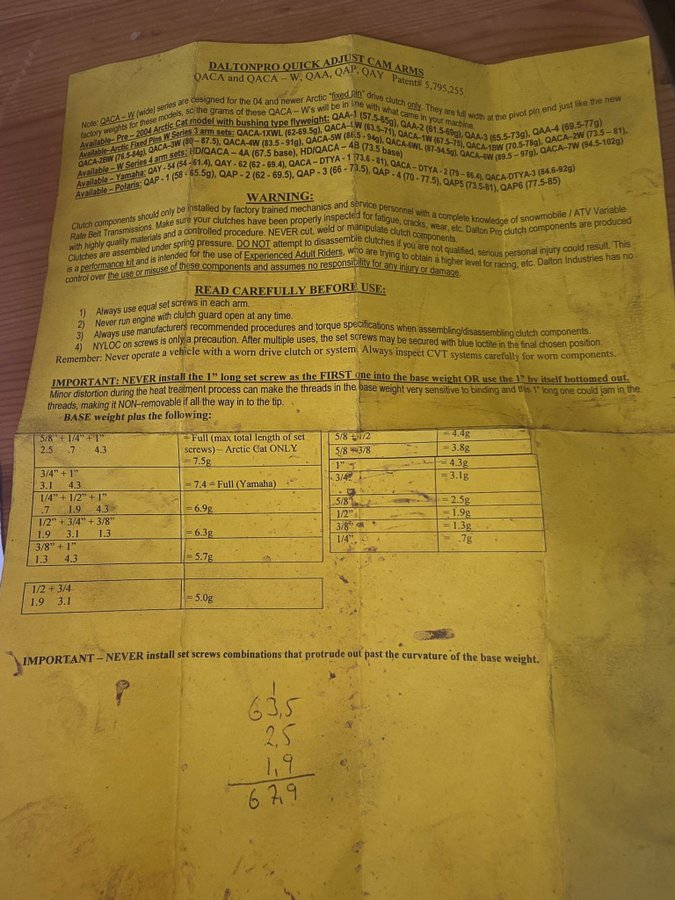 DALTONPRO QUICK ADJUST CAM ARMS
QACA and QACA – W, QAA, QAP, QAY Patent# 5,795,255
Note: QACA – W (wide) series are designed for the 04 and newer Arctic "fixed pin" drive clutch only. They are full width at the pivot pin end just like the new
factory weights for these models, so the grams of these QACA – W's will be in line with what came in your machine.
Available- Pre – 2004 Arctic Cat model with bushing type flyweight: QAA-1 (57.5-65g), QAA-2 (61.5-69g), QAA-3 (65.5-73g), QAA-4 (69.5-77g)
Available-Arctic Fixed Pins W Series 3 arm sets: QACA-1XWL (62-69.5g), QACA-LW (63.5-71), QACA-1W (67.5-75), QACA-1BW (70.5-78g), QACA-2W (73.5 – 81),
QACA-2BW (76.5-84g), QACA-3W (80 – 87.5), QACA-4W (83.5 - 91g), QACA-5W (86.5 - 94g), QACA-6WL (87-94.5g), QACA-6W (89.5 – 97g), QACA-7W (94.5-102g)
Available – W Series 4 arm sets: HD/QACA – 4A (67.5 base), HD/QACA – 4B (73.5 base)
Available – Yamaha: QAY - 54 (54 -61.4), QAY - 62 (62 - 69.4), QACA – DTYA - 1 (73.6 - 81), QACA – DTYA - 2 (79 – 86.4), QACA-DTYA-3 (84.6-92g)
Available – Polaris: QAP - 1 (58 - 65.5g), QAP - 2 (62 - 69.5), QAP - 3 (66 - 73.5), QAP - 4 (70 - 77.5), QAP5 (73.5-81), QAP6 (77.5-85)
WARNING:
Clutch components should only be installed by factory trained mechanics and service personnel with a complete knowledge of snowmobile / ATV Variable
Rate Belt Transmissions. Make sure your clutches have been properly inspected for fatigue, cracks, wear, etc. Dalton Pro clutch components are produced
with highly quality materials and a controlled procedure. NEVER cut, weld or manipulate clutch components.
Clutches are assembled under spring pressure. DO NOT attempt to disassemble clutches if you are not qualified, serious personal injury could result. This
is a performance kit and is intended for the use of Experienced Adult Riders, who are trying to obtain a higher level for racing, etc. Dalton Industries has no
control over the use or misuse of these components and assumes no responsibility for any injury or damage.
READ CAREFULLY BEFORE USE:
1) Always use equal set screws in each arm.
2) Never run engine with clutch guard open at any time.
3) Always use manufacturers recommended procedures and torque specifications when assembling/disassembling clutch components.
4) NYLOC on screws is only a precaution. After multiple uses, the set screws may be secured with blue loctite in the final chosen position.
Remember: Never operate a vehicle with a worn drive clutch or system. Always inspect CVT systems carefully for worn components.
IMPORTANT: NEVER install the 1" long set screw as the FIRST one into the base weight OR use the 1" by itself bottomed out.
Minor distortion during the heat treatment process can make the threads in the base weight very sensitive to binding and this 1" long one could jam in the
threads, making it NON–removable if all the way in to the tip.
BASE weight plus the following:
5/8" + 1/4" + 1" = Full (max total length of set
2.5 .7 4.3 screws) – Arctic Cat ONLY
= 7.5g
3/4" + 1"
3.1 4.3 = 7.4 = Full (Yamaha)
1/4" + 1/2" + 1"
.7 1.9 4.3 = 6.9g
1/2" + 3/4" + 3/8"
1.9 3.1 1.3 = 6.3g
3/8" + 1"
1.3 4.3 = 5.7g
1/2 + 3/4
1.9 3.1 = 5.0g
5/8 + 1/2 = 4.4g
5/8 + 3/8 = 3.8g
1" = 4.3g
3/4" = 3.1g
5/8" = 2.5g
1/2" = 1.9g
3/8" = 1.3g
1/4" = .7g
IMPORTANT – NEVER install set screws combinations that protrude out past the curvature of the base weight.
1
63,5
2,5
1,9
67,9